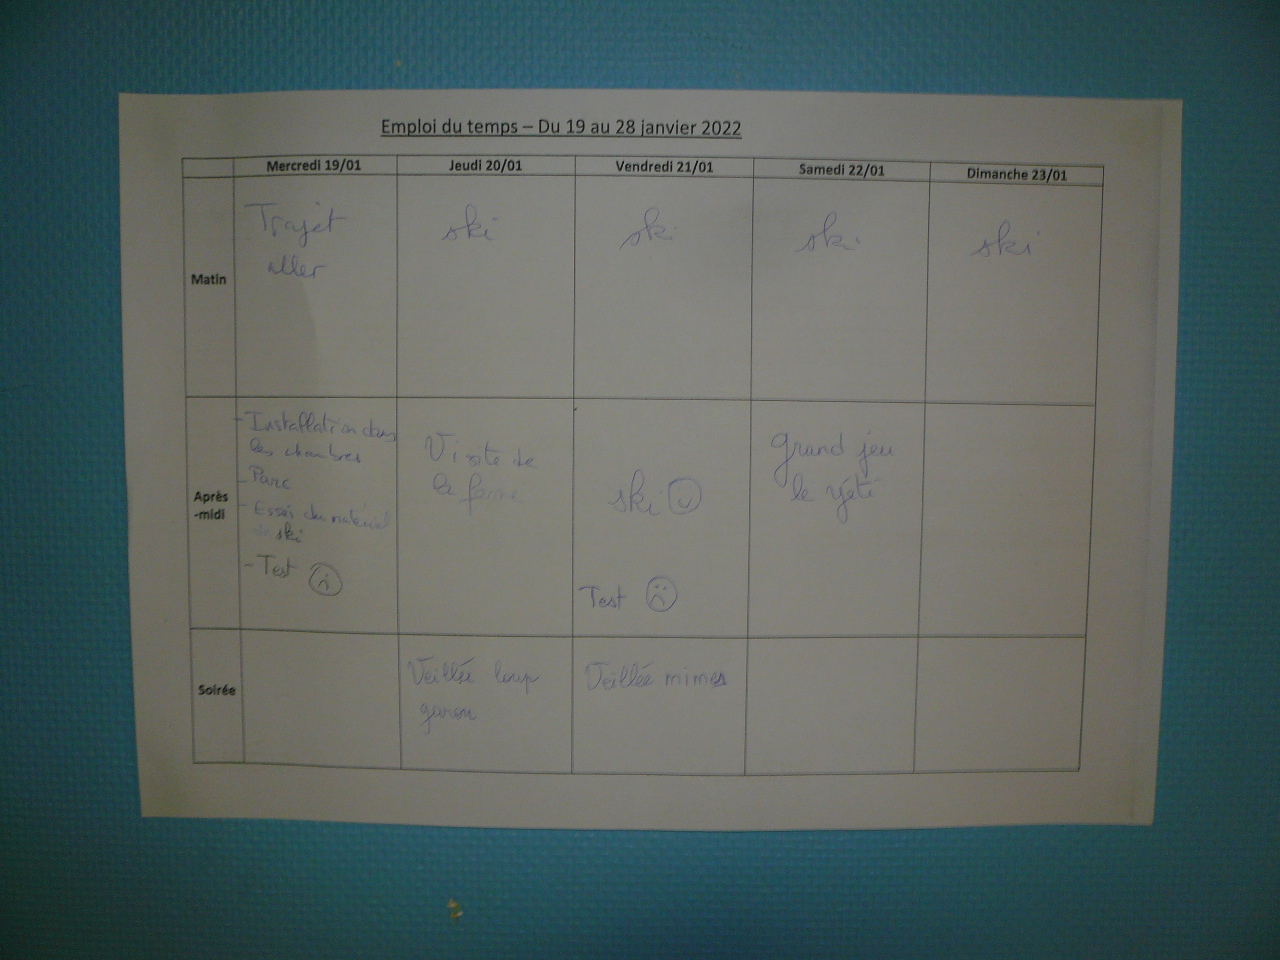 Emploi du temps – Du 19 au 28 janvier 2022
Mercredi 19/01
Jeudi 20/01
Vendredi 21/01
Samedi 22/01
Dimanche 23/01
Matin
Trajet
aller
ski
ski
ski
ski
Après
-midi
- Installation dans
les chambres
- Parc
- Essai du matériel
de ski
- Test
Visite de
la ferme
ski
Test
Grand jeu
le yéti
Soirée
Veillée loup
garou
Veillée mimes